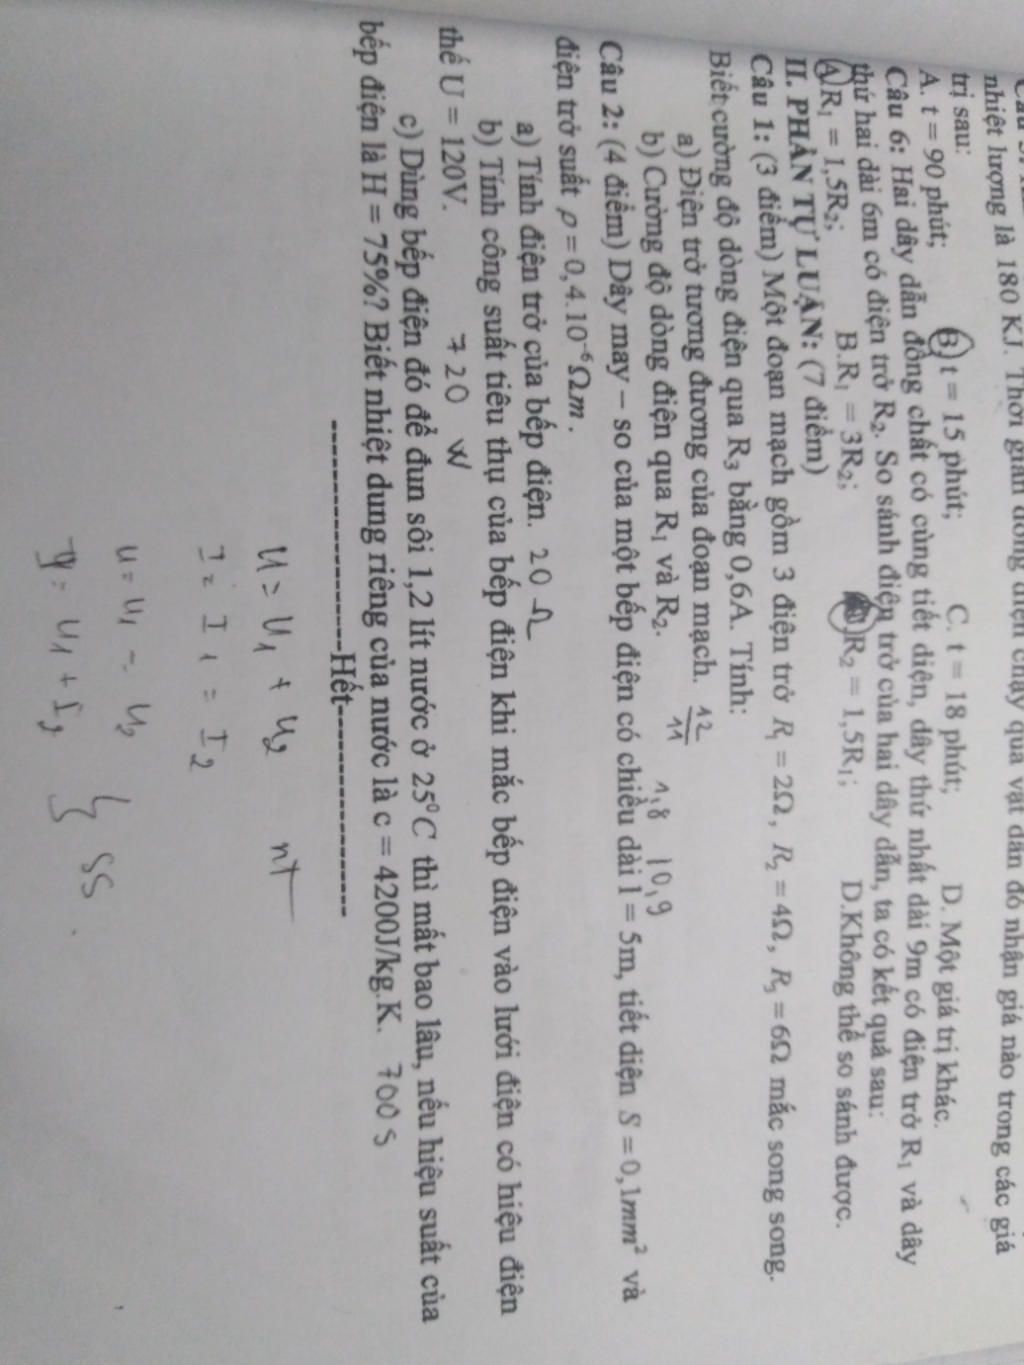 nhiệt lượng là 180 KJ. Thời gian dòng điện chạy qua vật dẫn đó nhận giá nào trong các giá
trị sau:
A. t = 90 phút; B. t = 15 phút; C. t = 18 phút; D. Một giá trị khác.
Câu 6: Hai dây dẫn đồng chất có cùng tiết diện, dây thứ nhất dài 9m có điện trở R₁ và dây
thứ hai dài 6m có điện trở R₂. So sánh điện trở của hai dây dẫn, ta có kết quả sau:
A. R₁ = 1,5R₂; B.R₁ = 3R₂; R₂ = 1,5R₁; D.Không thể so sánh được.
II. PHẦN TỰ LUẬN: (7 điểm)
Câu 1: (3 điểm) Một đoạn mạch gồm 3 điện trở R₁ = 2Ω, R₂ = 4Ω, R₃ = 6Ω mắc song song.
Biết cường độ dòng điện qua R₃ bằng 0,6A. Tính:
a) Điện trở tương đương của đoạn mạch. 12/11
b) Cường độ dòng điện qua R₁ và R₂. 1,8 | 0,9
Câu 2: (4 điểm) Dây may – so của một bếp điện có chiều dài l = 5m, tiết diện S = 0,1mm² và
điện trở suất ρ = 0,4.10⁻⁶Ωm.
a) Tính điện trở của bếp điện. 20 Ω
b) Tính công suất tiêu thụ của bếp điện khi mắc bếp điện vào lưới điện có hiệu điện
thế U = 120V. 720 W
c) Dùng bếp điện đó để đun sôi 1,2 lít nước ở 25⁰C thì mất bao lâu, nếu hiệu suất của
bếp điện là H = 75%? Biết nhiệt dung riêng của nước là c = 4200J/kg.K. 700 s
--------------------Hết--------------------
U = U₁ + U₂ nt
I = I₁ = I₂
U = U₁ = U₂
} SS.